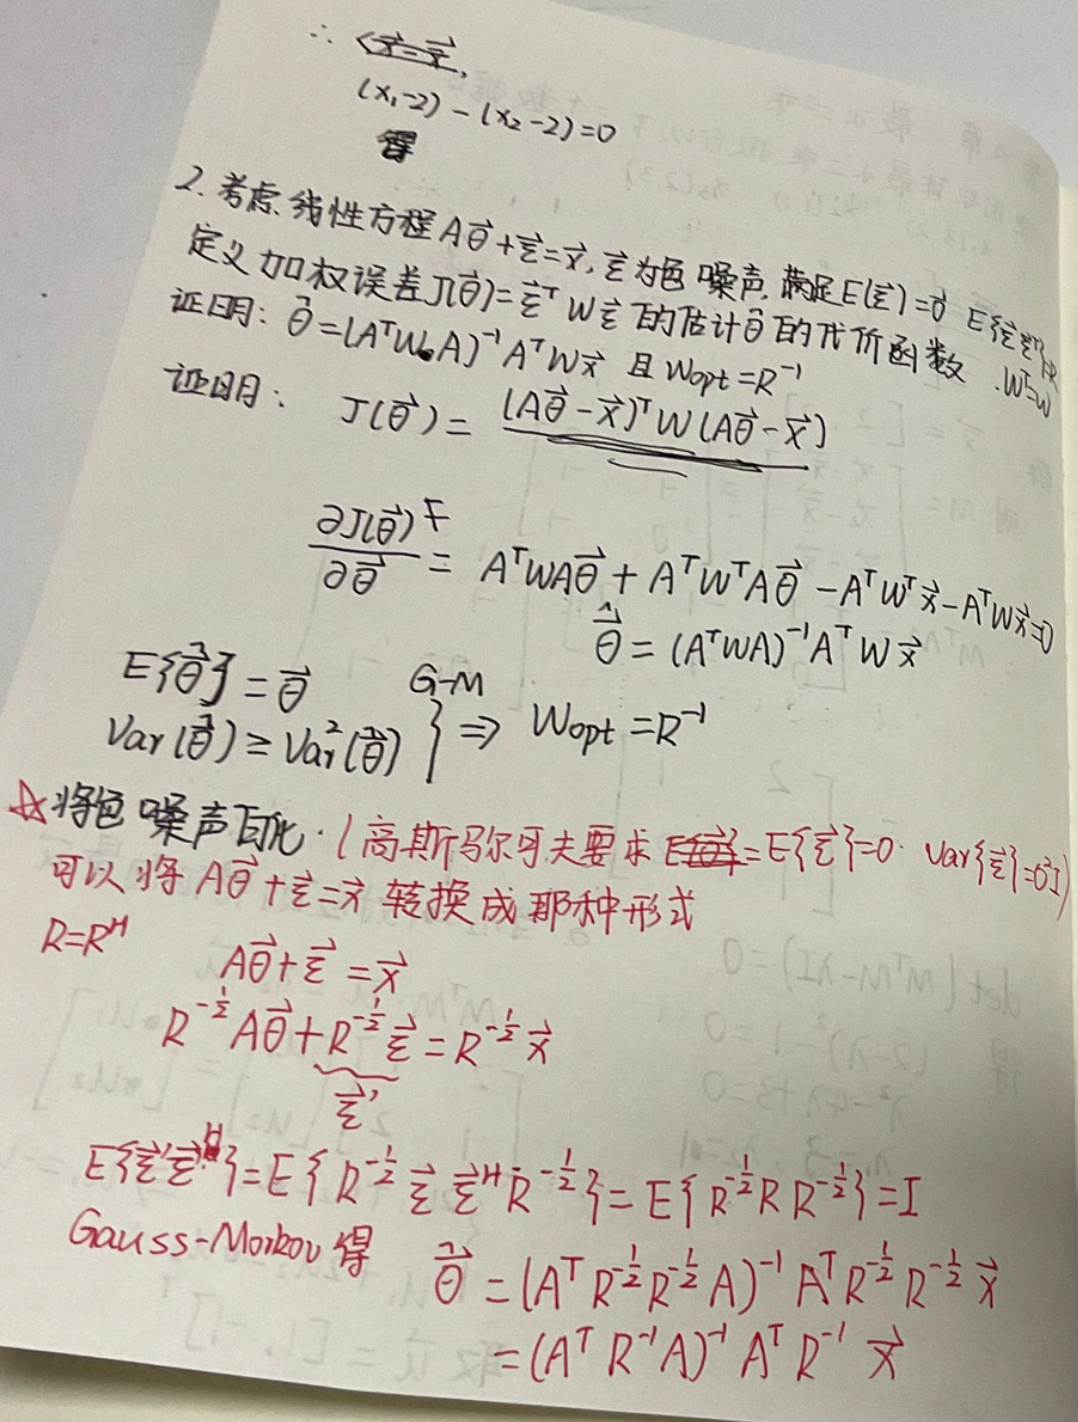 ∴
(x₁-2) - (x₂-2)=0
得
2. 考虑线性方程 Aθ⃗+ε⃗=x⃗, ε⃗为色噪声, 满足E(ε⃗)=0⃗ E{ε⃗ε⃗ᵀ}=R
定义加权误差J(θ⃗)=ε⃗ᵀWε⃗的估计θ⃗的代价函数. Wᵀ=W
证明: θ̂=(AᵀWA)⁻¹AᵀWx⃗ 且 Wopt=R⁻¹
证明: J(θ⃗)= (Aθ⃗-x⃗)ᵀW(Aθ⃗-x⃗)
∂J(θ⃗)/∂θ⃗ = AᵀWAθ⃗ + AᵀWᵀAθ⃗ - AᵀWᵀx⃗ - AᵀWx⃗=0
θ̂ = (AᵀWA)⁻¹Aᵀ W x⃗
E{θ̂} = θ⃗ G-M
Var(θ̂) ≥ Var(θ̂) } ⇒ Wopt =R⁻¹
☆将色噪声白化. (高斯马尔可夫要求 =E{ε⃗}=0 Var{ε⃗}=σ²I)
可以将 Aθ⃗+ε⃗=x⃗ 转换成那种形式
R=Rᴴ
Aθ⃗+ε⃗ =x⃗
R^{-1/2} Aθ⃗+R^{-1/2} ε⃗ = R^{-1/2} x⃗
ε⃗'
E{ε⃗'ε⃗'ᴴ}=E{R^{-1/2} ε⃗ ε⃗ᴴ R^{-1/2}}= E{R^{-1/2}R R^{-1/2}}=I
Gauss-Morkov 得 θ̂ = (Aᵀ R^{-1/2}R^{-1/2} A)⁻¹ AᵀR^{-1/2} R^{-1/2} x⃗
=(Aᵀ R⁻¹A)⁻¹ Aᵀ R⁻¹ x⃗